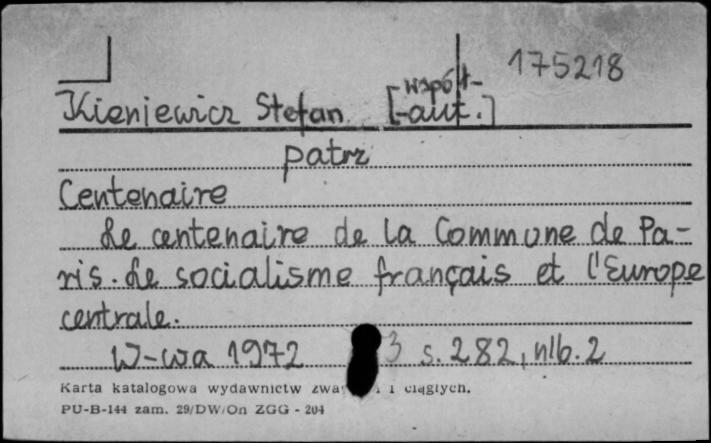 175218
Kieniewicz Stefan [-współ-
-aut.]
patrz
Centenaire
Le centenaire de la Commune de Pa-
ris. Le socialisme français et l'Europe
centrale.
W-wa 1972 3 s. 282, nlb. 2
Karta katalogowa wydawnictw i ciągłych.
PU-B-144 zam. 29/DW/On ZGG - 204